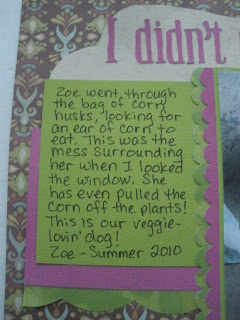 I didn't
Zoe went through
the bag of corn
husks, looking for
an ear of corn to
eat. This was the
mess surrounding
her when I looked
the window. She
has even pulled the
corn off the plants!
This is our veggie-
lovin' dog!
Zoe - Summer 2010